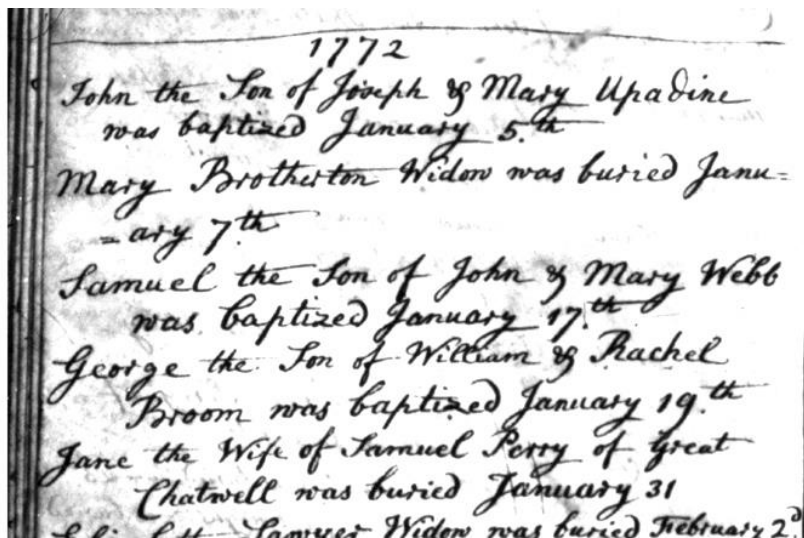 1772
John the Son of Joseph & Mary Upadine
was baptized January 5.th
Mary Brotherton Widow was buried Janu=
=ary 7.th
Samuel the Son of John & Mary Webb
was baptized January 17.th
George the Son of William & Rachel
Broom was baptized January 19.th
Jane the Wife of Samuel Perry of Great
Chatwell was buried January 31
Sawyer Widow was buried February 2.d